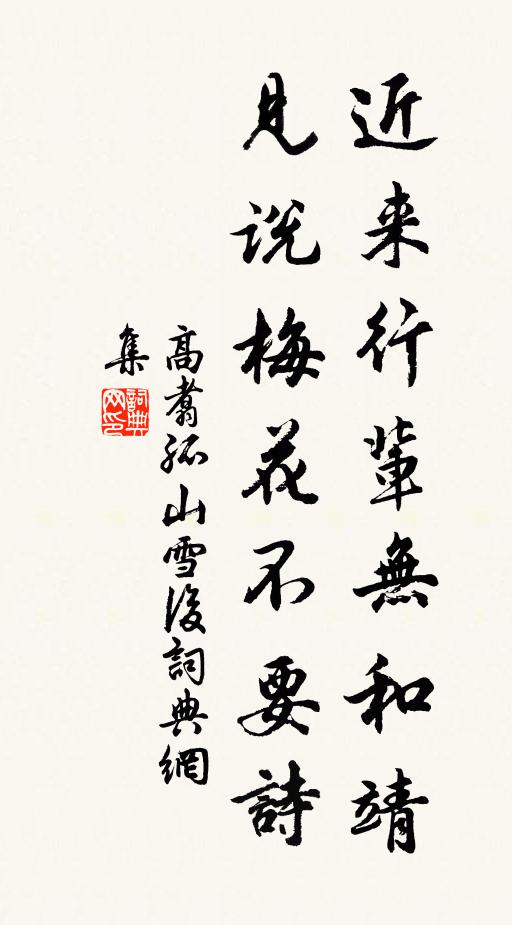 近来行輩無和靖
見説梅花不要詩
高翥孤山雪後詞典網
集
詞典
网印